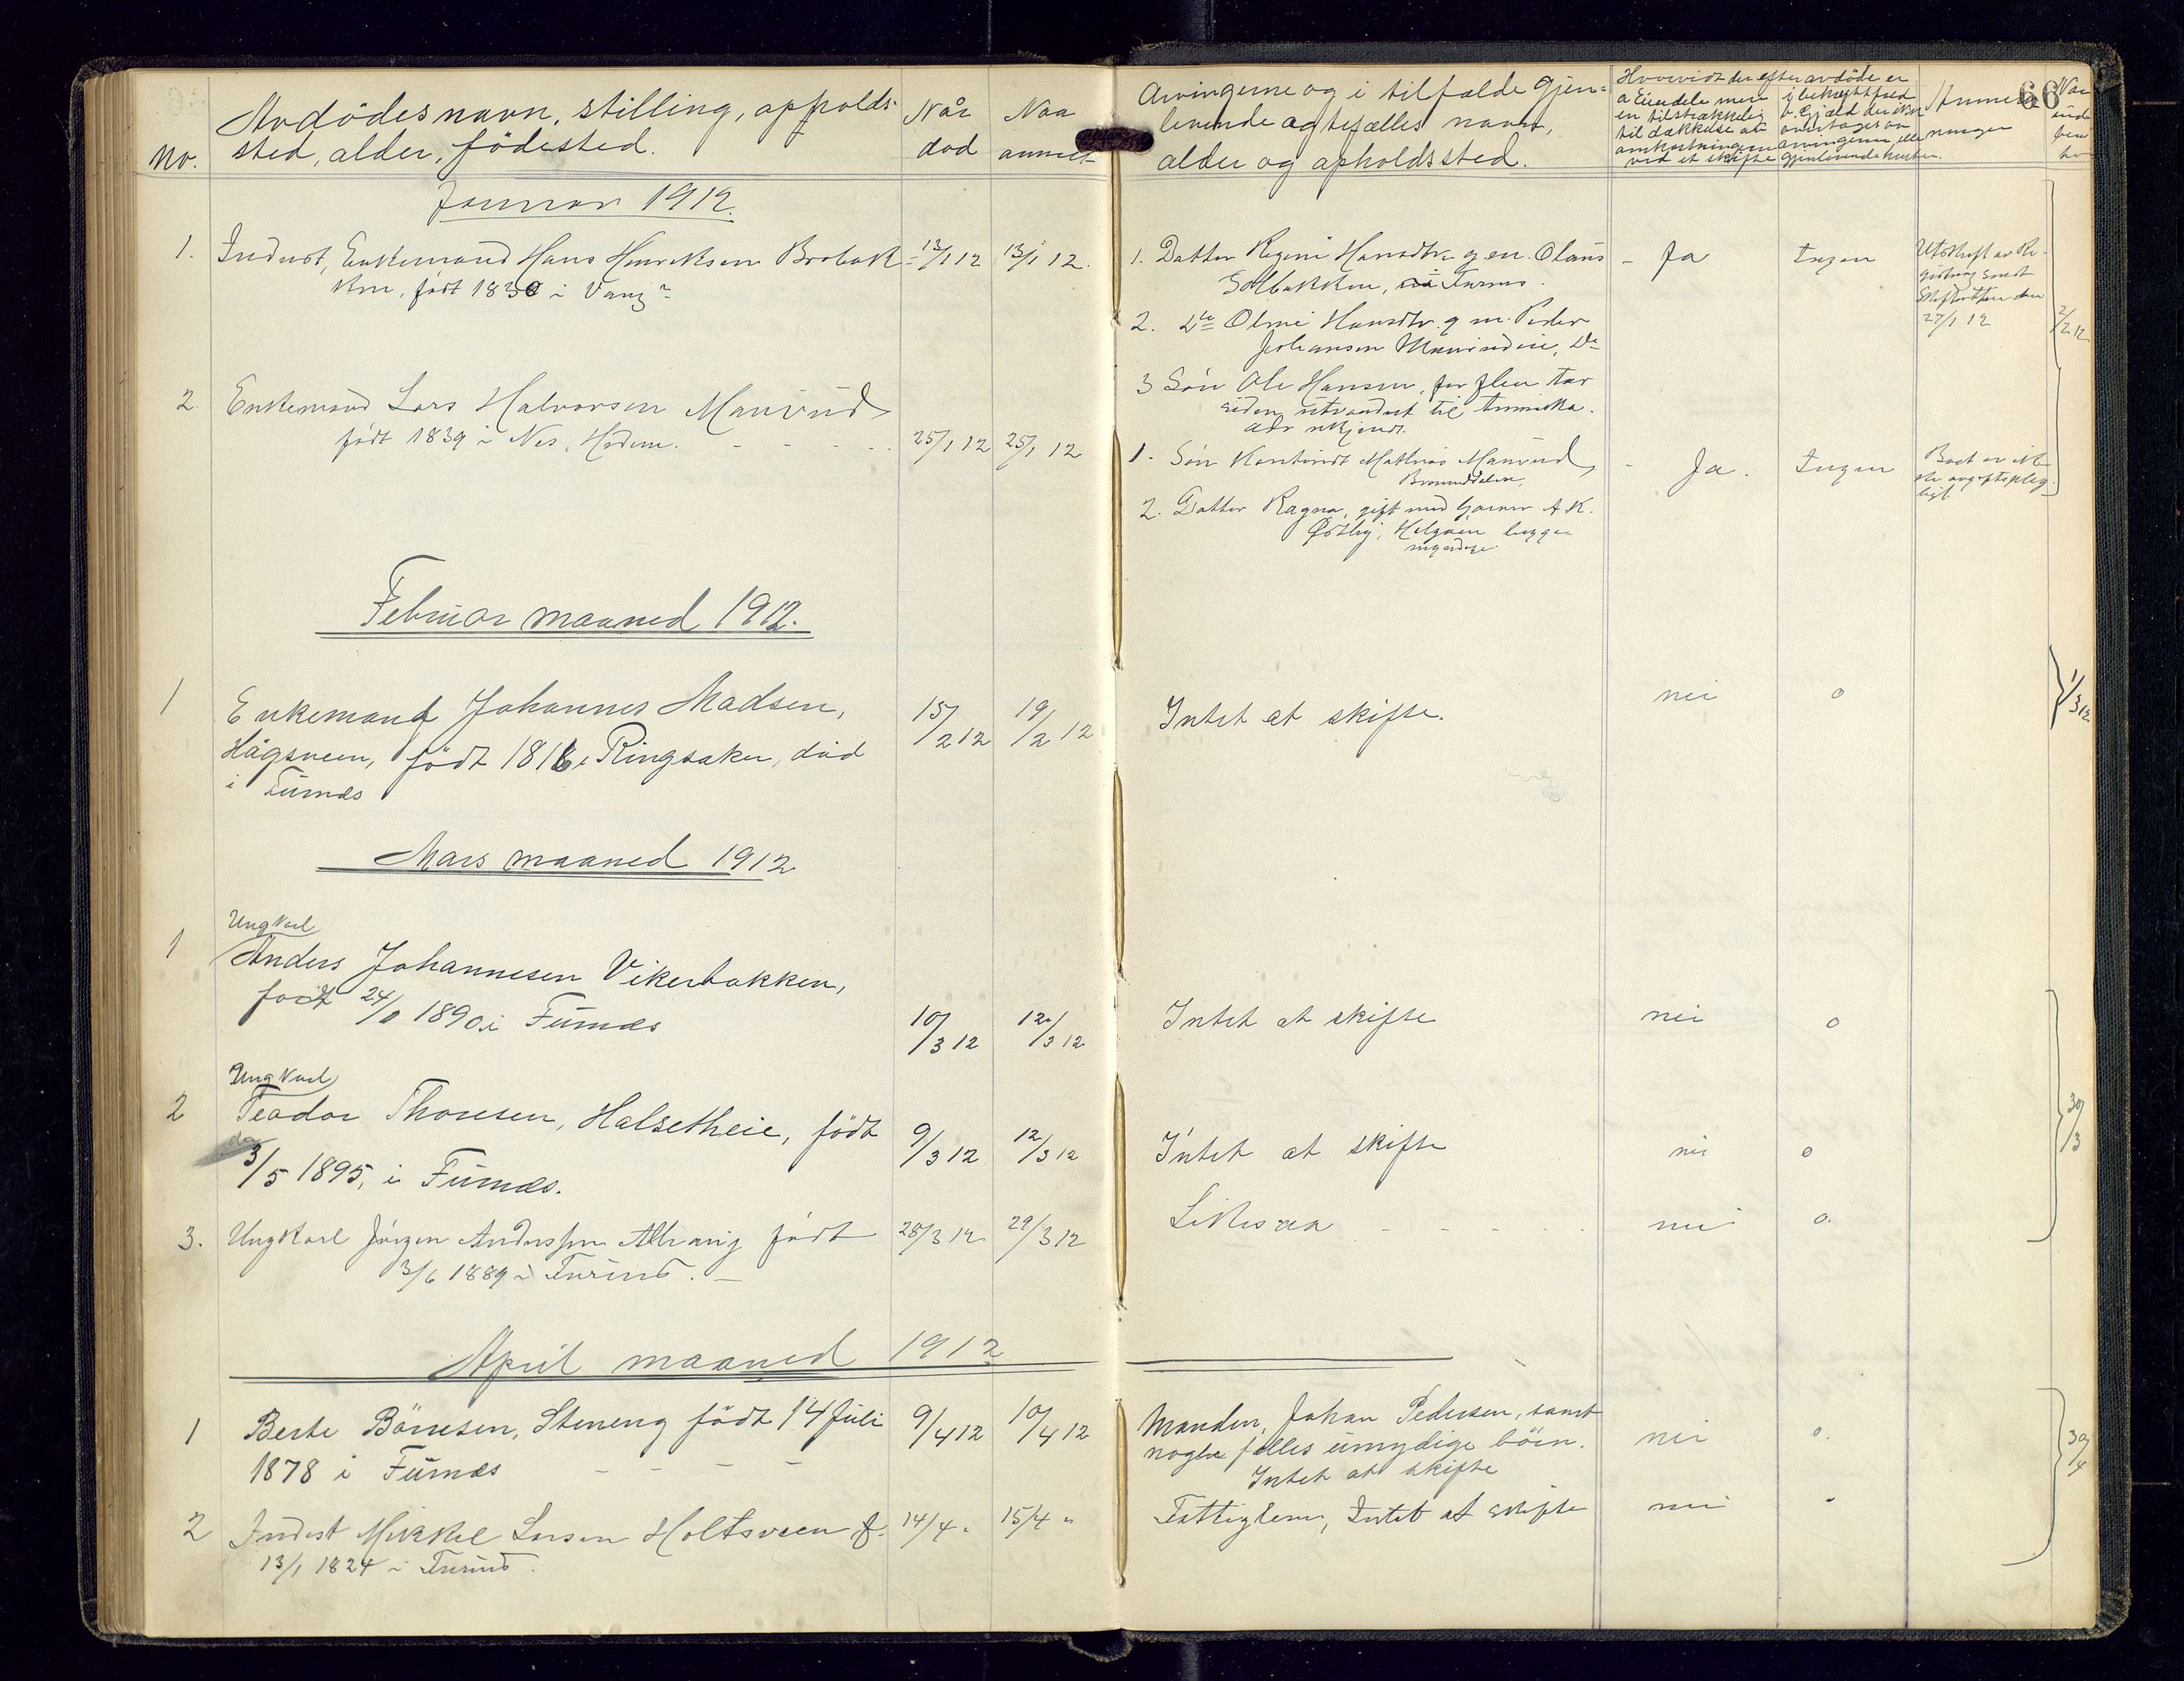 66
No.
Avdödes navn, stilling, opholds-
sted, alder, födested.
Når
död
Naa
anmeldt
Arvingerne og i tilfælde gjen-
levende ægtefælles navn,
alder og opholdssted.
Hvorvidt der efter avdöde er
a Eiendele mere
en tilstrækkelig
til dækkelse av
omkostningerne
ved et skifte
i bekræftfald
b. Gjæld der ikke
overtages av
arvingerne eller
gjenlevende
Anmerk-
ninger
Januar 1912.
1. Inderst, Enkemand Hans Henriksen Brobak-
ken, født 1830 i Vang
13/1 12
13/1 12.
1. Datter Regine Hansdtr. g. m. Olaus
Solbakken, Furnes.
2. Do Oline Hansdtr. g. m. Peder
Johansen, Do
3 Søn Ole Hansen, for flere aar
siden utvandret til Amerika.
adr ukjendt.
Ja
Ingen
Utskrift av Re-
gistrering sendt
Skifteretten den
27/1 12
2/2 12
2. Enkemand Lars Halvorsen Maurud
født 1839 i Nes, Hedem.
25/1 12
25/1 12
1. Søn Mathias Maurud,
Brumunddalen,
2. Datter Ragna, gift med A. K.
Østby, Helgøen begge
myndige.
Ja.
Ingen
Boet er ikke
avgiftsplig-
tigt
Februar maaned 1912.
1
Enkemand Johannes Madsen,
Hågsveen, född 1816 i Ringsaker, död
i Furnæs
15/2 12
19/2 12
Intet at skifte.
nei
0
1/3 12
Mars maaned 1912
Ungkarl
1 Anders Johannesen Vikerbakken,
født 24/11 1890 i Furnæs
10/3 12
12/3 12
Intet at skifte
nei
0
Ungkarl
2 Teodor Thoresen, Halsetheie, född
den
3/5 1895, i Furnæs.
9/3 12
12/3 12
Intet at skifte
nei
0
30/3
3. Ungkarl Jørgen Anderssen født
3/6 1889 i Furnes.
28/3 12
29/3 12
Likesaa
nei
0.
April maaned 1912
1 Berte Börresen, Steneng född 14 Juli
1878 i Furnæs
9/4 12
10/4 12
Manden, Johan Pedersen, samt
nogle fælles umyndige börn.
Intet at skifte
nei
0.
30/4
2 Inderst Mikkel Larsen Holtsveen f.
13/1 1824 i Furnes.
14/4 "
15/4 "
Fattiglem, Intet at skifte
nei
"